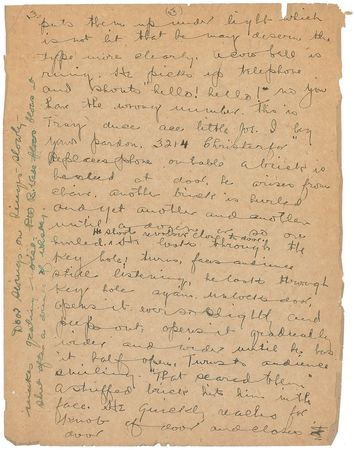 3. (3)
puts them up under light which
is not lit that he may discern the
type more clearly. bell is
ring. He picks up telephone
and shouts "hello! hello!" no you
have the wrong number. this is
little Joe. I beg
your pardon. 3214
Replaces phone on table a brick is
heaved at door, he arises from
chair, another brick is hurled
and yet another and another
until a dozen or so are
hurled. He looks through the
He shoots revolver close to door
key hole, turns, faces audience
still listening, he looks through
key hole again, unlocks door,
opens it ever so slightly and
peeps out, opens it gradually
wider and wider until he has
it half open. Turns to audience
smiling. "That scared them"
a stuffed brick hits him in the
face. He quickly reaches for
knob of door and closes it
door
Door swings on hinges slowly
makes noise.
shut after a dozen